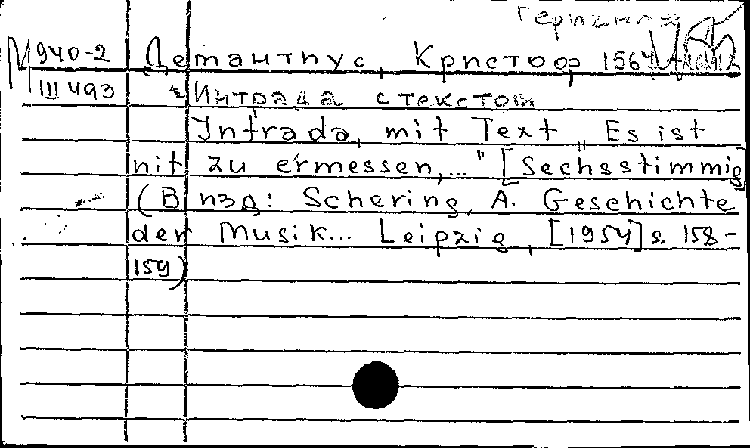 Германия
М 940-2 Демантиус, Кристоф, 1564
III 493 Интрада с текстом
Intrada, mit Text „Es ist
nit zu ermessen,..." [Sechsstimmig]
(В изд: Schering, A. Geschichte
der Musik... Leipzig, [1954] s. 158-
159)